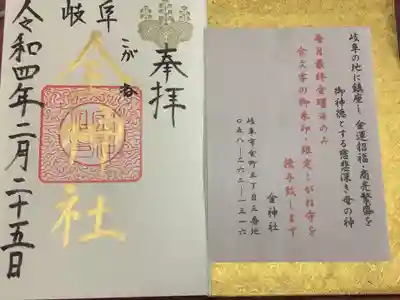 奉拝
岐阜
こがね
金神社
令和四年二月二十五日
岐阜の地に鎮座し 金運招福・商売繁盛を
御神徳とする慈悲深き母の神
毎月最終金曜日のみ
金文字の御朱印・限定 守を
授与致します
金神社
岐阜市金町五丁目三番地
〇五八-二六二-一三一六